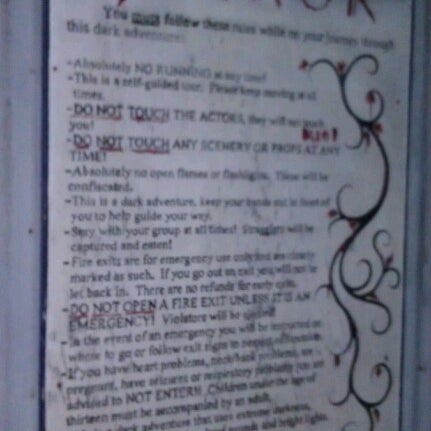 You must follow these rules while on your journey through
this dark adventure.
-Absolutely NO RUNNING at any time!
-This is a self-guided tour. Please keep moving at all
times.
-DO NOT TOUCH THE ACTORS, they will not touch
you!
-DO NOT TOUCH ANY SCENERY OR PROPS AT ANY
TIME!
-Absolutely no open flames or flashlights. These will be
confiscated.
-This is a dark adventure, keep your hands out in front of
you to help guide your way.
-Stay with your group at all times! Stragglers will be
captured and eaten!
-Fire exits are for emergency use only and are clearly
marked as such. If you go out an exit you will not be
let back in. There are no refunds for early exits.
-DO NOT OPEN A FIRE EXIT UNLESS IT IS AN
EMERGENCY! Violators will be
-In the event of an emergency you will be instructed on
where to go or follow exit signs to
-If you have heart problems, neck/back problems, are
pregnant, have seizures or respiratory problems you are
advised to NOT ENTER. Children under the age of
thirteen must be accompanied by an adult.
dark adventure that uses extreme darkness,
sounds and bright lights.